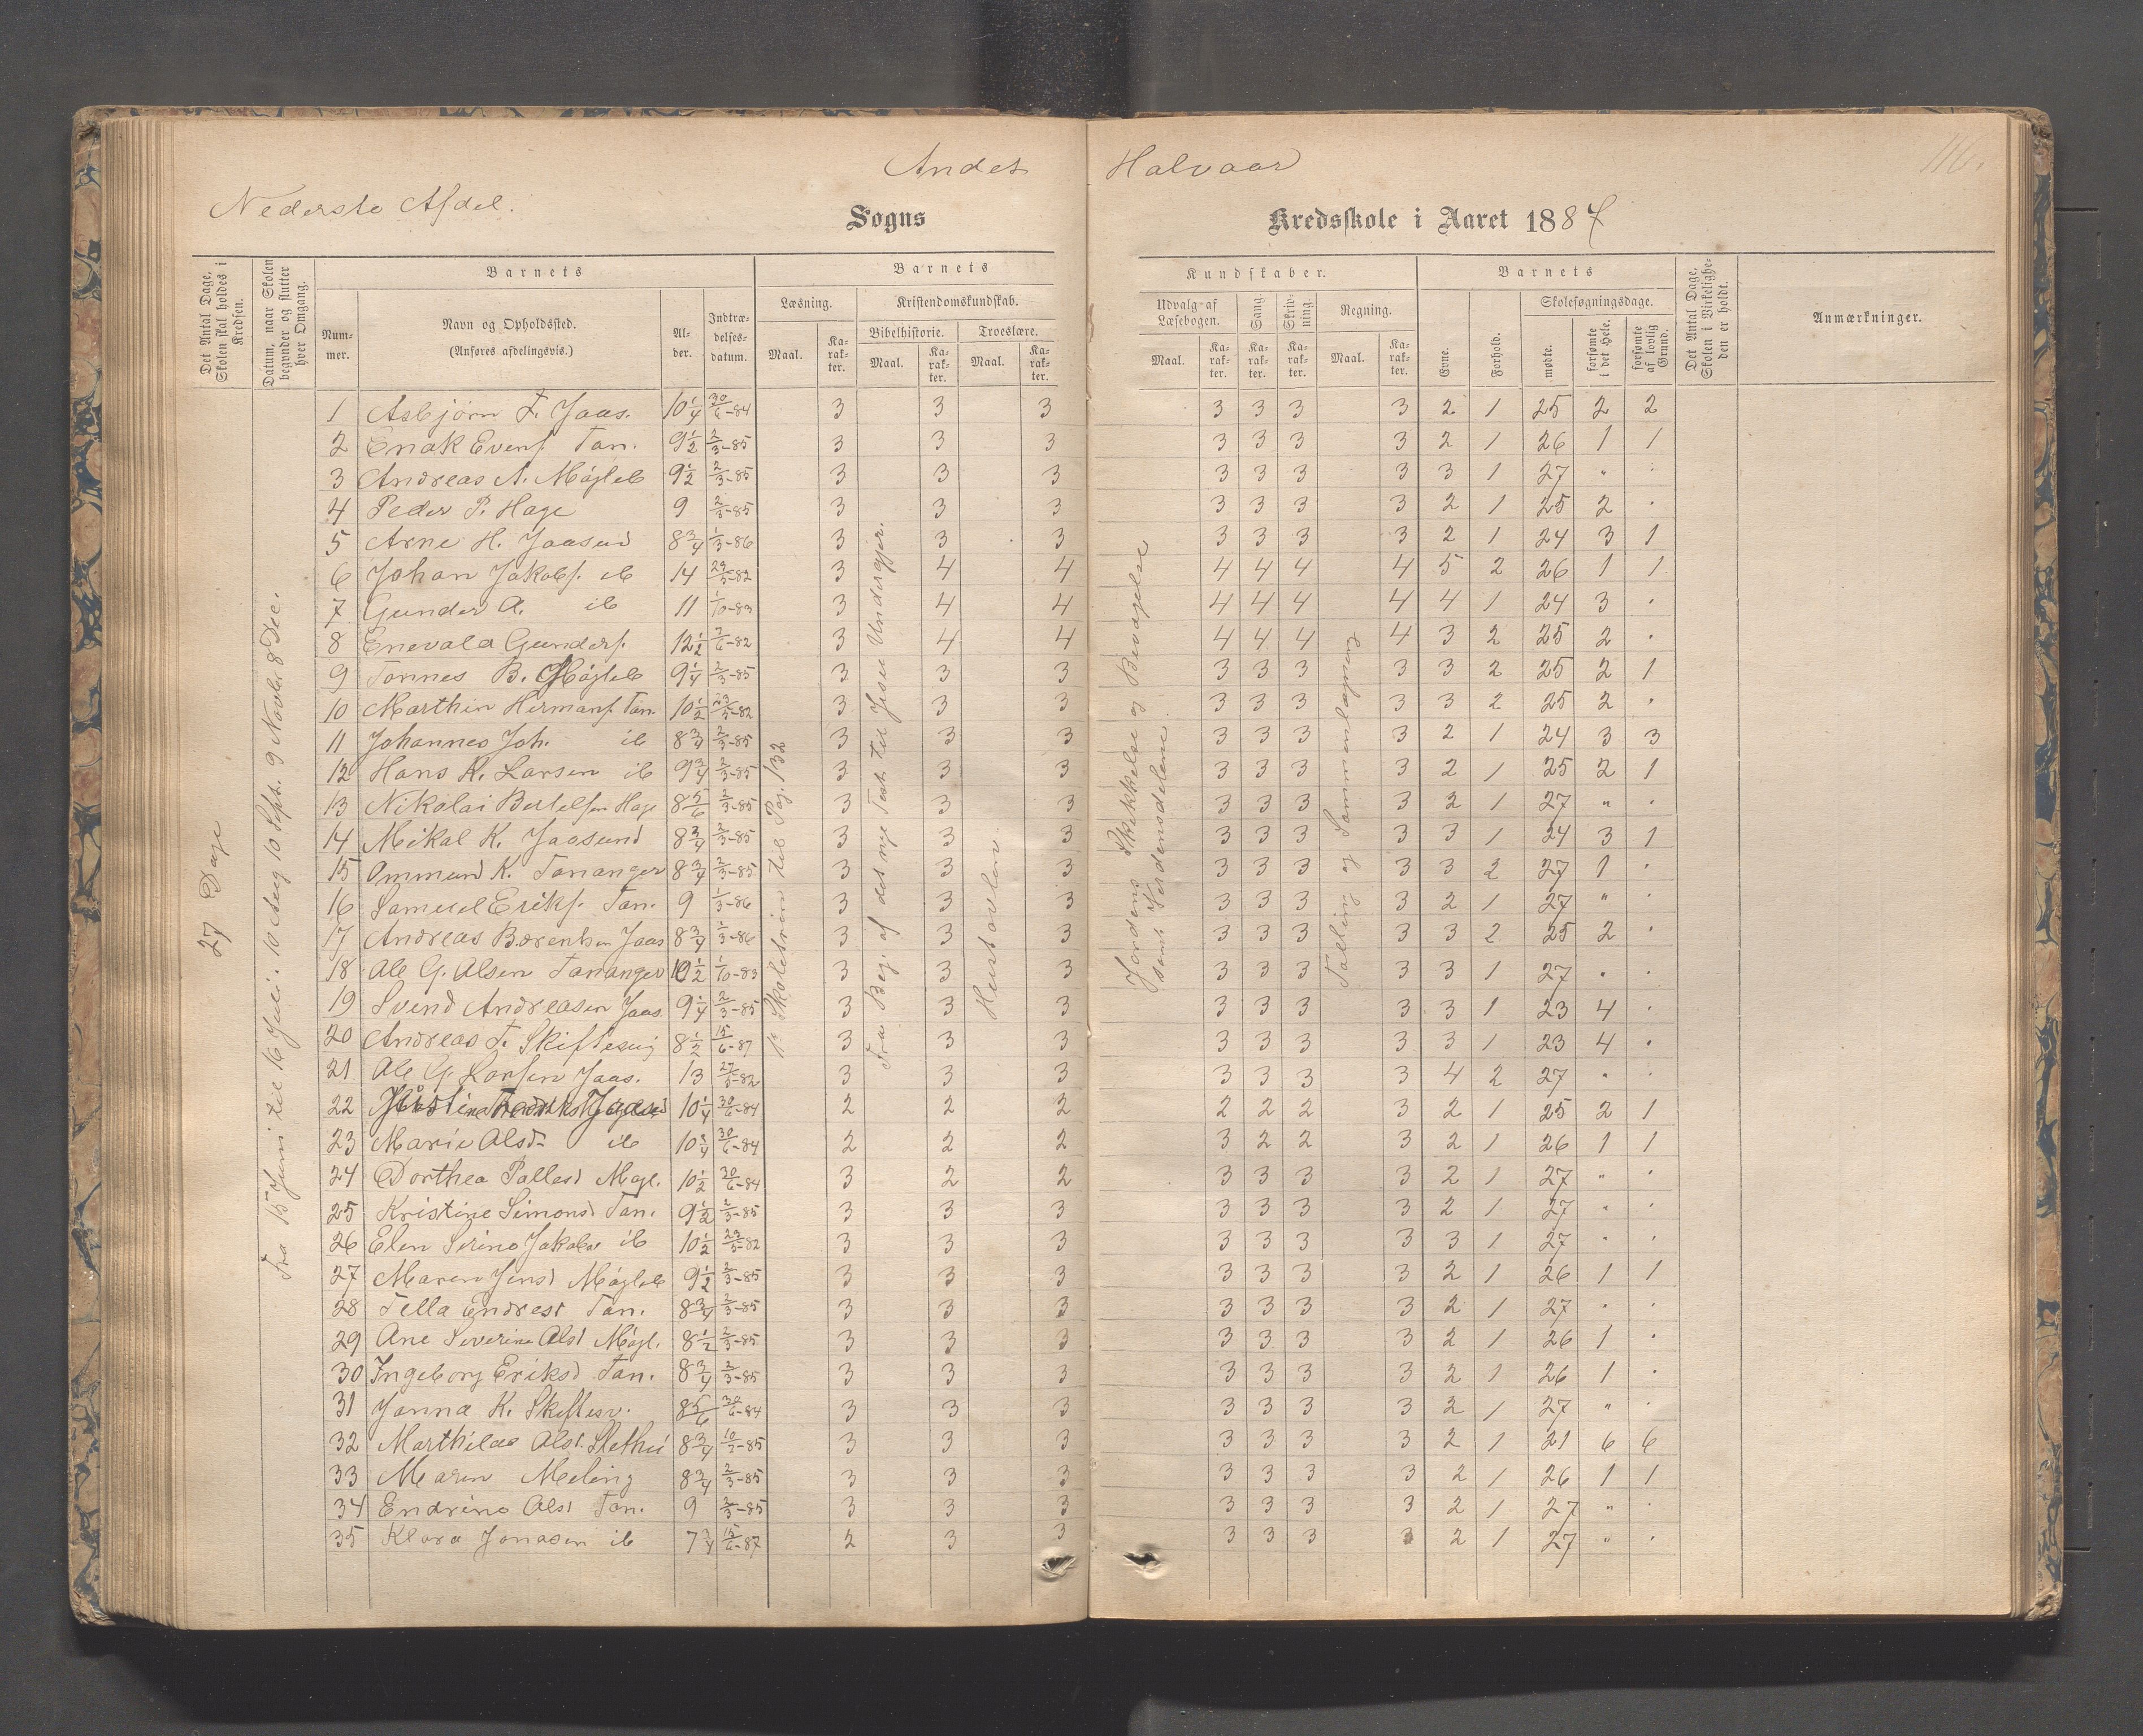 Andet Halvaar
116.
Nederste Afdel.
Sogns Kredsskole i Aaret 1887
Det Antal Dage, Skolen skal holdes i Kredsen.
Datum, naar Skolen begynder og slutter hver Omgang.
Barnets
Num-mer.
Navn og Opholdssted.
(Anføres afdelingsvis.)
Al-der.
Indtræ-delses-datum.
Barnets
Læsning.
Kristendomskundskab.
Bibelhistorie.
Troeslære.
Maal.
Ka-rak-ter.
Maal.
Ka-rak-ter.
Maal.
Ka-rak-ter.
Kundskaber.
Udvalg af Læsebogen.
Sang.
Skriv-ning.
Regning.
Maal.
Ka-rak-ter.
Ka-rak-ter.
Ka-rak-ter.
Maal.
Ka-rak-ter.
Barnets
Evne.
Forhold.
Skolesøgningsdage.
mødte.
forsømte i det Hele.
forsømte af lovlig Grund.
Det Antal Dage, Skolen i Virkelighe-den er holdt.
Anmærkninger.
27 Dage
Fra 15 Juni til 16 Juli. 10 Aug 10 Sept. 9 Novbr 8 Dec.
Skoletrin til Pag. 132
Fra Beg. af det nye Test. til Jesu Undergjer.
Hustavlen
Jordens Skikkelse og Bevægelse
samt Verdensdelene.
Talling og Sammenlægning
1 Asbjørn T. Jaas. 10 1/4 30/6-84 3 3 3 3 3 3 3 2 1 25 2 2
2 Enok Evens. Tan. 9 1/2 2/3-85 3 3 3 3 3 3 3 2 1 26 1 1
3 Andreas A. Mögleb 9 1/2 2/3-85 3 3 3 3 3 3 3 3 1 27 " "
4 Peder P. Hage 9 2/3-85 3 3 3 3 3 3 3 2 1 25 2 "
5 Arne H. Jaasund 8 3/4 1/3-86 3 3 3 3 3 3 3 2 1 24 3 1
6 Johan Jakobs. ib 14 29/5-82 3 4 4 4 4 4 4 5 2 26 1 1
7 Gunder A. ib 11 1/10-83 3 4 4 4 4 4 4 4 1 24 3 "
8 Enevald Gunders. 12 1/2 7/6-82 3 4 4 4 4 4 4 3 2 25 2 "
9 Tønnes B. Mögleb 9 1/4 2/3-85 3 3 3 3 3 3 3 3 2 25 2 1
10 Marthin Hermans. Tan. 10 1/2 29/5-82 3 3 3 3 3 3 3 3 2 25 2 "
11 Johannes Joh. ib 8 3/4 2/3-85 3 3 3 3 3 3 3 2 1 24 3 3
12 Hans K. Larsen ib 9 3/4 2/3-85 3 3 3 3 3 3 3 2 1 25 2 1
13 Nikolai Bertelsen Hage 8 5/6 2/3-85 3 3 3 3 3 3 3 2 1 27 " "
14 Mikal K. Jaasund 8 3/4 2/3-85 3 3 3 3 3 3 3 3 1 24 3 1
15 Ommund K. Tananger 8 3/4 2/3-85 3 3 3 3 3 3 3 3 2 27 1 "
16 Samuel Eriks. Tan. 9 1/3-86 3 3 3 3 3 3 3 2 1 27 " "
17 Andreas Børentsen Jaas 8 3/4 1/3-86 3 3 3 3 3 3 3 3 2 25 2 "
18 Ole G. Olsen Tananger 10 1/2 1/10-83 3 3 3 3 3 3 3 3 1 27 " "
19 Svend Andreasen Jaas. 9 1/4 2/3-85 3 3 3 3 3 3 3 3 1 23 4 "
20 Andreas T. Skiftesvig 8 1/2 15/6-87 3 3 3 3 3 3 3 3 1 23 4 "
21 Ole G. Larsen Jaas. 13 29/5-82 3 3 3 3 3 3 3 4 2 27 " "
22 10 1/4 30/6-84 2 2 2 2 2 2 3 2 1 25 2 1
23 Marie Olsd. ib 10 1/4 30/6-84 2 2 2 3 2 2 3 2 1 26 1 1
24 Dorthea Pallesd Mögl. 10 1/2 30/6-84 3 2 2 3 3 3 3 2 1 27 " "
25 Kristine Simonsd. Tan. 9 1/2 2/3-85 3 3 3 3 3 3 3 2 1 27 " "
26 Elen Serine Jakobsd ib 10 1/2 29/5-82 3 3 3 3 3 3 3 3 1 27 " "
27 Maren Jensd Mögleb 9 1/2 2/3-85 3 3 3 3 3 3 3 2 1 26 1 1
28 Tella Endresd Tan. 8 3/4 2/3-85 3 3 3 3 3 3 3 2 1 27 " "
29 Ane Severine Olsd Mögl. 8 1/2 2/3-85 3 3 3 3 3 3 3 2 1 26 1 "
30 Ingeborg Eriksd Tan. 8 3/4 2/3-85 3 3 3 3 3 3 3 2 1 26 1 "
31 Janna K. Skiftesv. 8 5/6 30/6-84 3 3 3 3 3 3 3 2 1 27 " "
32 Marthilas Olsd. 8 3/4 10/2-85 3 3 3 3 3 3 3 2 1 21 6 6
33 Maren Meling 8 3/4 2/3-85 3 3 3 3 3 3 3 2 1 26 1 1
34 Endrine Olsd Tan. 9 2/3-85 3 3 3 3 3 3 3 2 1 27 " "
35 Klara Jonasen ib 7 3/4 15/6-87 2 3 3 3 3 3 3 2 1 27 " "